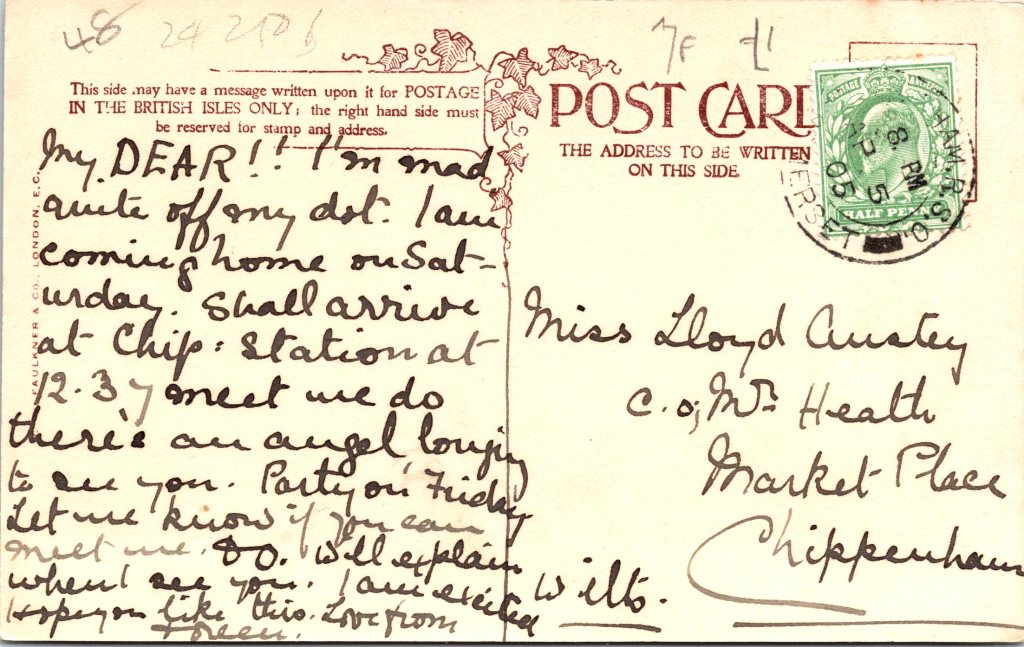 48 
This side may have a message written upon it for POSTAGE
IN THE BRITISH ISLES ONLY; the right hand side must
be reserved for stamp and address.
POST CARD
THE ADDRESS TO BE WRITTEN
ON THIS SIDE.
POSTAGE
HALF PENNY
HAM.R.S.O.
8 PM
AP 5
05
MERSET
FAULKNER & CO., LONDON, E.C.
My DEAR!! I'm mad
quite off my dot. I am
coming home on Sat-
urday. Shall arrive
at Chip: Station at
12.37 meet me do
there's an angel longing
to see you. Party on Friday
Let me know if you can
meet me. DO. Will explain
when I see you. I am excited
Hope you like this. Love from
Miss Lloyd Anstey
c.o; Mrs Heath
Market Place
Chippenham
Wilts.